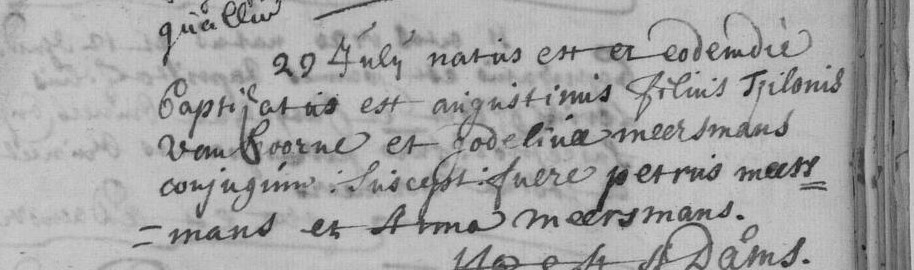 29 July natus est et eodem die
Baptisatus est augustinus filius Egilonis
van hoorne et godelivae meersmans
conjugum : suscept: fuere petrus meers=
=mans et Anna meersmans.
Adams.